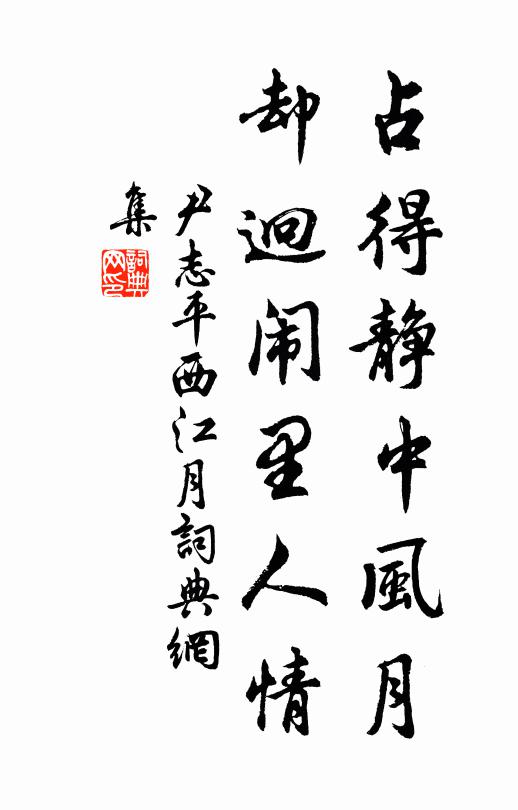 占得静中風月
却迴闹里人情
尹志平西江月詞典網
集
詞典网印